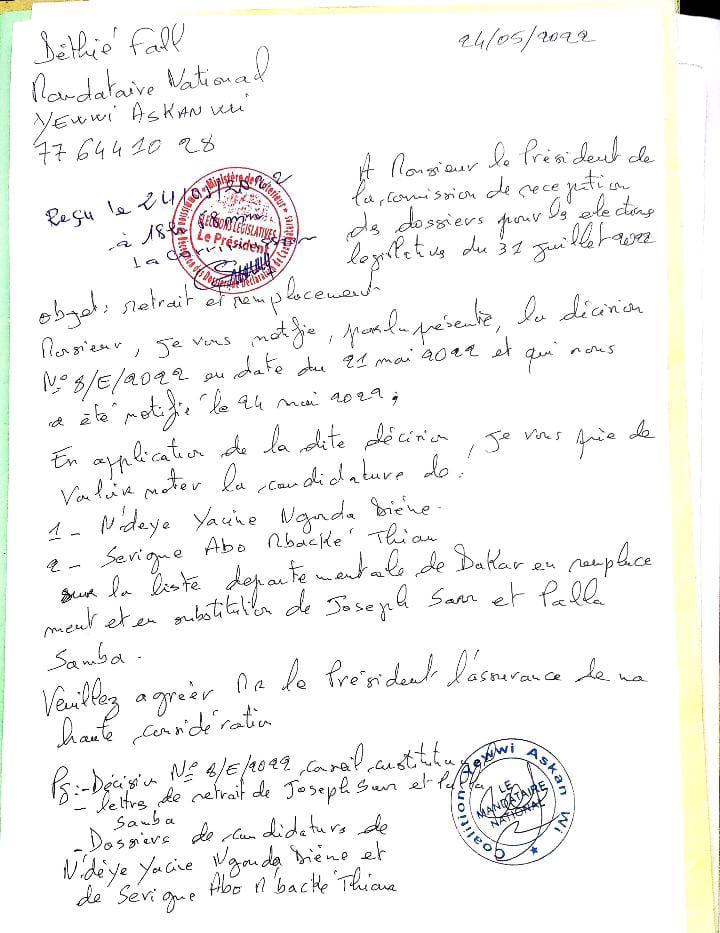 Déthié Fall
Mandataire National
YEWWI ASKAN WI
77 644 10 28
24/05/2022
A Monsieur le Président de
la comission de reception
des dossiers pour les elections
legislatives du 31 juillet 2022
Reçu le 24/05/2022
à 18h
Ministère de l'Intérieur
ELECTIONS LEGISLATIVES
Le Président
objet: retrait et remplacement
Monsieur, je vous notifie, par la présente, la décision
N° 8/E/2022 en date du 21 mai 2022 et qui nous
a été notifié le 24 mai 2022;
En application de la dite décision, je vous prie de
Vouloir noter la candidature de:
1- N'deye Yacine Ngonda Diéne.
2- Serigne Abo Mbacké Thiam
sur la liste departementale de Dakar en remplace
ment et en substitution de Joseph Sarr et Palla
Samba.
Veuillez agréer Mr le Président l'assurance de ma
haute considération
Pj:-Décision N° 8/E/2022 conseil constitu
- lettres de retrait de Joseph Sarr et Palla
Samba
- Dossiers de candidature de
N'déye Yacine Ngonda Diéne et
de Serigne Abo M'backé Thiam
Coalition Yewwi Askan Wi
LE
MANDATAIRE
NATIONAL